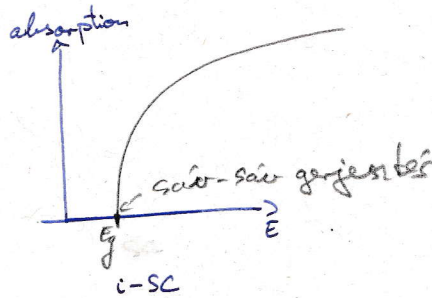 absorption
sáv-sáv gerjesztés
Eg
E
i-SC